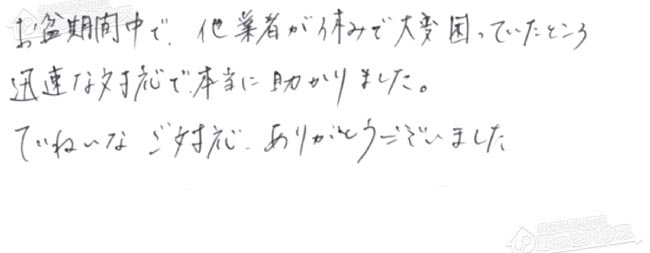 お盆期間中で、他業者が休みで大変困っていたところ
迅速な対応で本当に助かりました。
ていねいなご対応、ありがとうございました